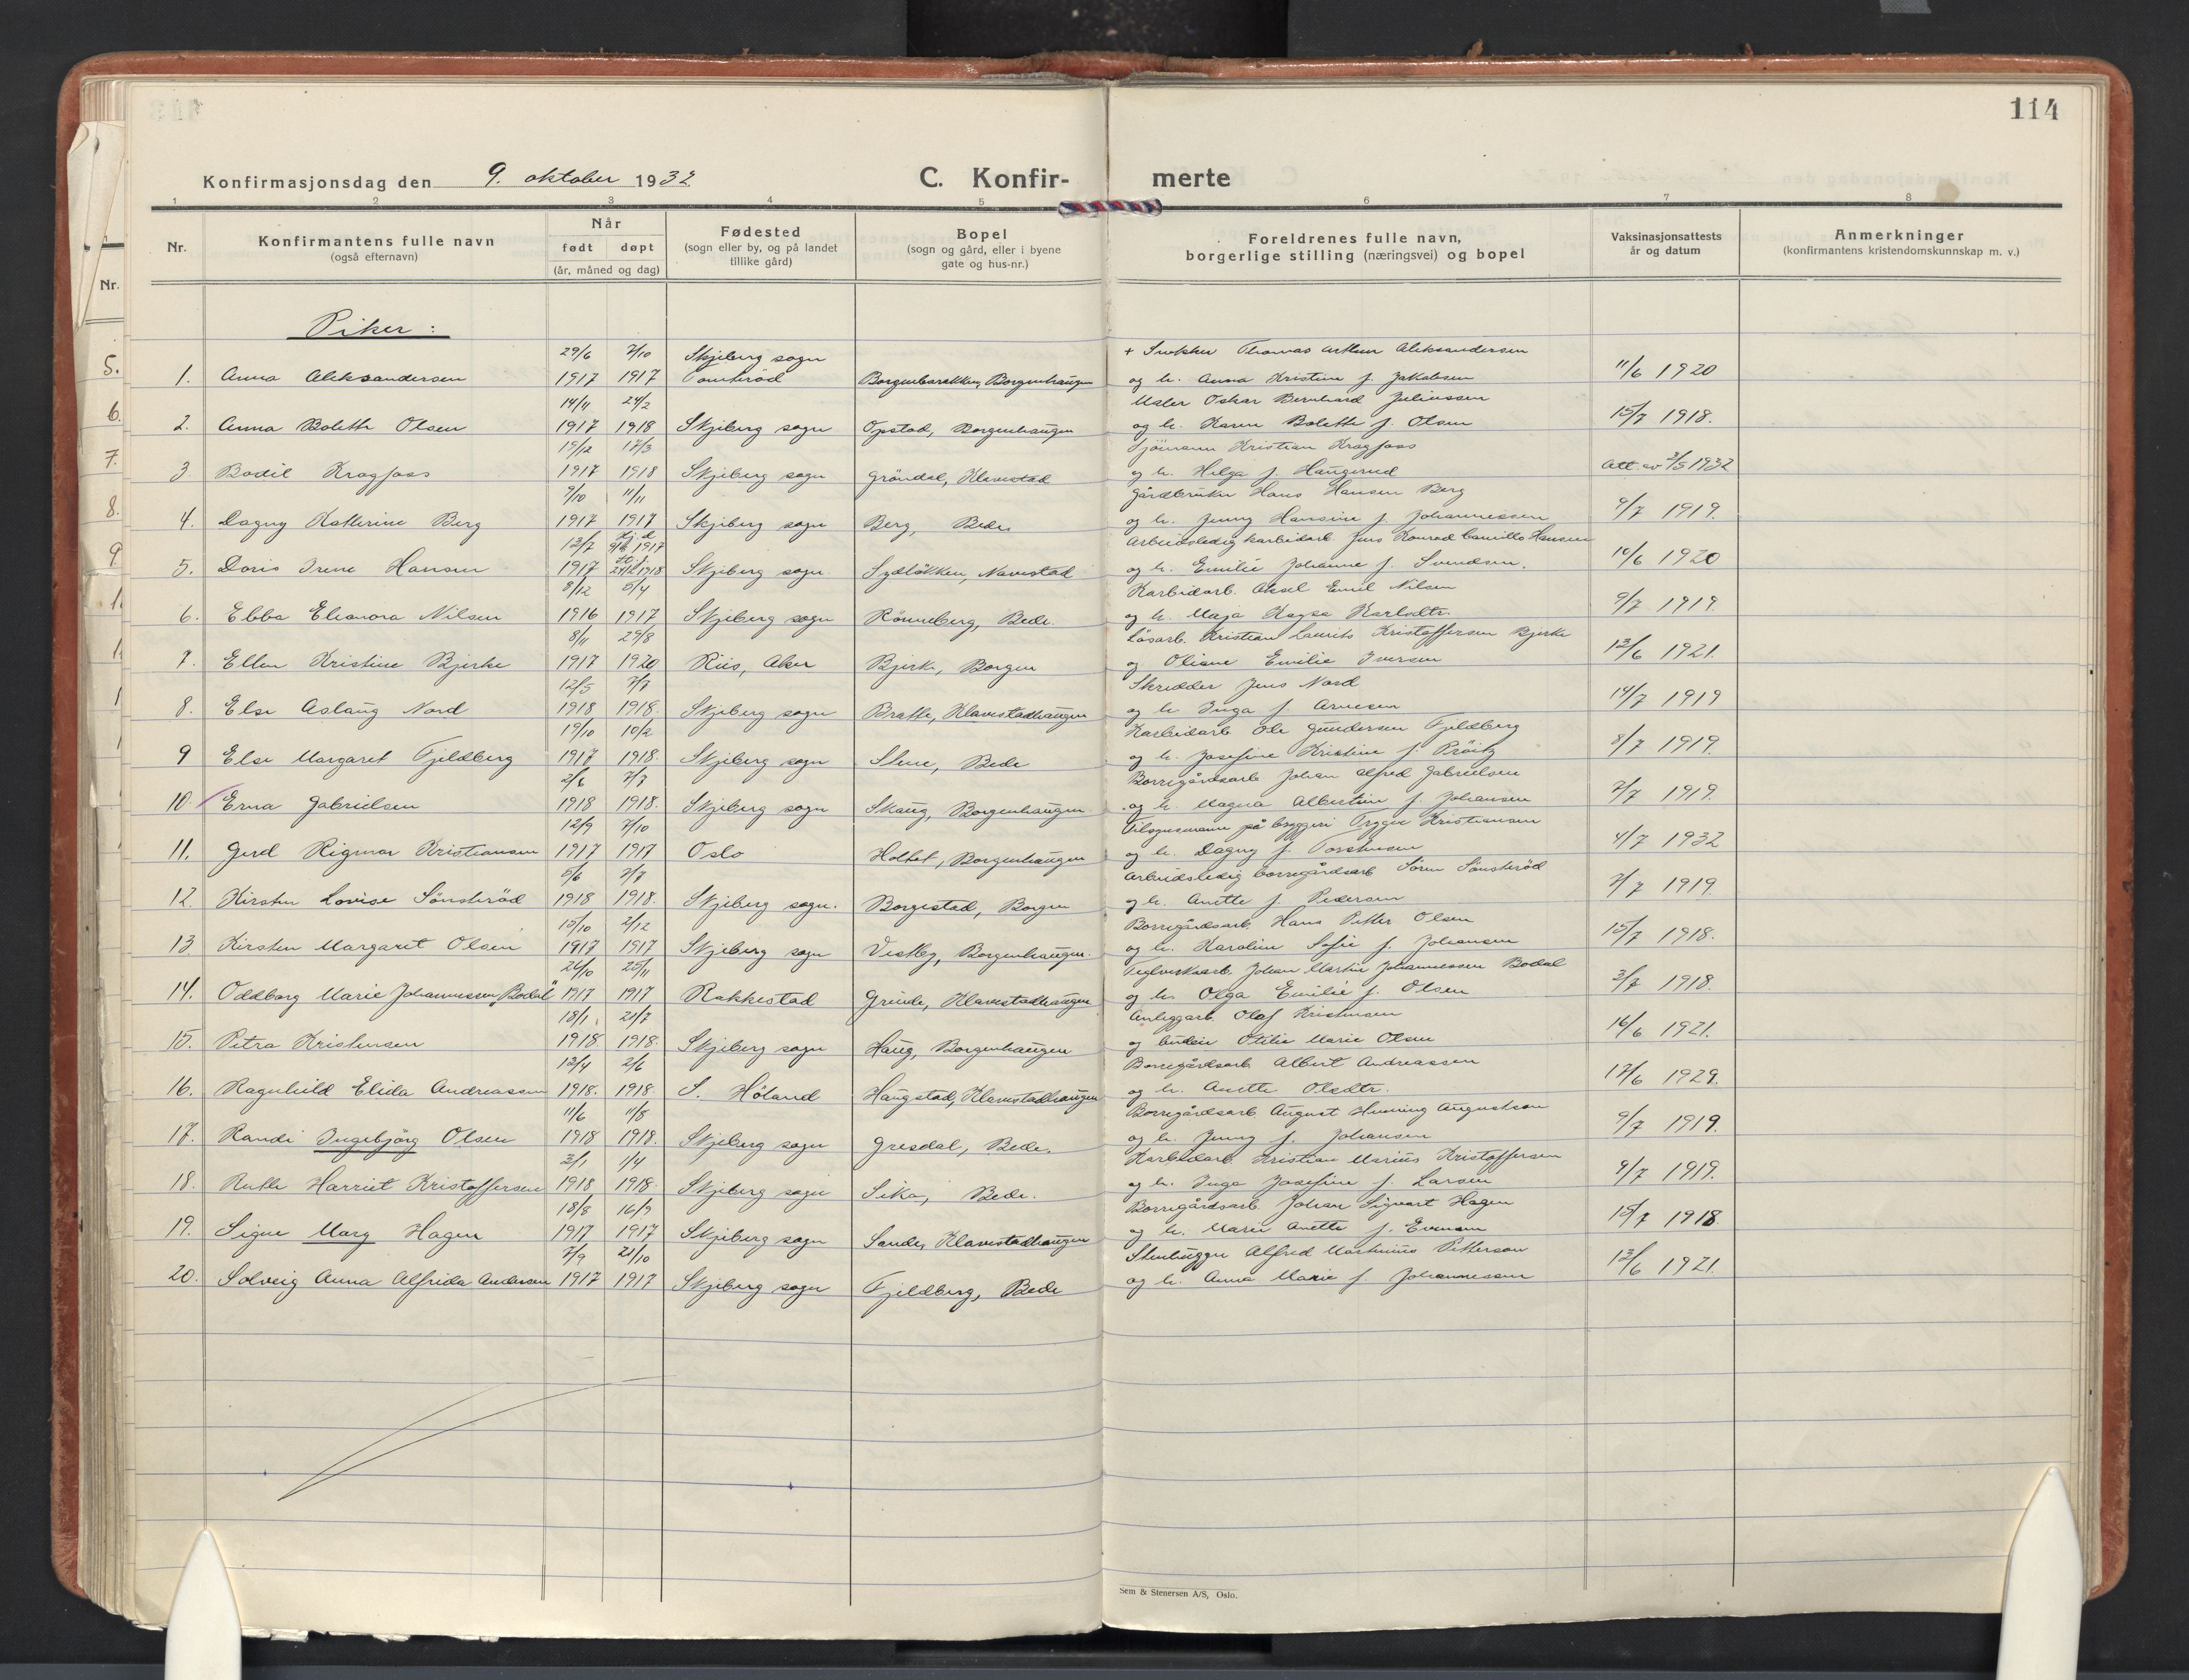 114
Konfirmasjonsdag den 9. oktober 1932
C. Konfir- merte
1 2 3 4 5 6 7 8
Nr.
Konfirmantens fulle navn
(også efternavn)
Når
født døpt
(år, måned og dag)
Fødested
(sogn eller by, og på landet
tillike gård)
Bopel
(sogn og gård, eller i byene
gate og hus-nr.)
Foreldrenes fulle navn,
borgerlige stilling (næringsvei) og bopel
Vaksinasjonsattests
år og datum
Anmerkninger
(konfirmantens kristendomskunnskap m. v.)
Nr.
5.
6.
7.
8.
9.
Piker:
29/6 7/10 Skjeberg sogn + Snekker Thomas Arthur Aleksandersen
1. Anna Aleksandersen 1917 1917 Tomterød Borgenbarakken, Borgenhaugen og h. Anna Kristine f. Jakobsen 11/6 1920
14/11 24/2 Maler Oskar Bernhard Juliussen
2. Anna Bolette Olsen 1917 1918 Skjeberg sogn Opstad, Borgenhaugen og h. Karen Bolette f. Olsen 15/7 1918.
19/12 17/3 Sjömann Kristian Kragfoss
3. Bodil Kragfoss 1917 1918 Skjeberg sogn Gröndal, Klavestad og h. Helga f. Haugerud Att. av 3/5 1932
9/10 11/11 Gårdbruker Hans Hansen Berg
4. Dagny Katherine Berg 1917 1917 Skjeberg sogn Berg, Bede og h. Jenny Hansine f. Johannessen 9/7 1919.
12/7 Hj.d. 9/12 1917 Arbeidsledig karbidarb. Jens Konrad Camillo Hansen
5. Doris Irene Hansen 1917 24/2 1918 Skjeberg sogn Sydløkken, Navestad og h. Emilie Johanne f. Svendsen. 10/6 1920
8/12 5/4 Karbidarb. Aksel Emil Nilsen
6. Ebba Eleonora Nilsen 1916 1917 Skjeberg sogn Rönneberg, Bede. og h. Maja Kajsa Karlsdtr. 9/7 1919.
8/11 29/8 Løsarb. Kristian Laurits Kristoffersen Bjerke
7. Ellen Kristine Bjerke 1917 1920 Riis, Aker Bjerke, Borgen og Oliane Emilie Iversen 13/6 1921.
12/5 7/7 Skredder Jens Nord
8. Else Aslaug Nord 1918 1918. Skjeberg sogn Bratte, Klavestadhaugen og h. Inga f. Arnesen 14/7 1919
19/10 10/2 Karbidarb. Ole Gundersen Fjeldberg
9 Else Margaret Fjeldberg 1917 1918. Skjeberg sogn Stene, Bede og h. Josefine Kristine f. Pröitz 8/7 1919.
2/6 7/7 Borregårdsarb. Johan Alfred Gabrielsen
10. Erna Gabrielsen 1918 1918. Skjeberg sogn Skaug, Borgenhaugen og h. Magna Albertine f. Johansen 7/7 1919.
12/9 7/10 Tilsynsmann på bryggeri Trygve Kristiansen
11. Gerd Rigmor Kristiansen 1917 1917 Oslo Holtet, Borgenhaugen og h. Dagny f. Torstensen 4/7 1932
5/6 7/7 Arbeidsledig borregårdsarb. Sören Sönsteröd
12. Kirsten Lovise Sönsteröd 1918 1918. Skjeberg sogn. Borgestad, Borgen og h. Anette f. Pedersen 7/7 1919.
15/10 2/12 Borregårdsarb. Hans Petter Olsen
13. Kirsten Margaret Olsen 1917 1917 Skjeberg sogn Vestby, Borgenhaugen. og h. Karoline Sofie f. Johansen 15/7 1918.
26/10 25/11 Teglverksarb. Johan Martin Johannessen Bodal
14. Oddborg Marie Johannessen "Bodal" 1917 1917 Rakkestad Grinde, Klavestadhaugen og h. Olga Emilie f. Olsen 3/7 1918.
18/1 21/7 Anleggarb. Olaf Kristensen
15. Petra Kristensen 1918. 1918. Skjeberg sogn Haug, Borgenhaugen og Otilie Marie Olsen 16/6 1921.
13/4 2/6 Borregårdsarb. Albert Andreassen
16. Ragnhild Elida Andreassen 1918. 1918. S. Höland Haugstad, Klavestadhaugen og h. Anette Olsdtr. 17/6 1929.
11/6 11/8 Borregårdsarb. August Henning Augustson
17. Randi Ingebjörg Olsen 1918 1918. Skjeberg sogn Gresdal, Bede. og h. Jenny f. Johansen 9/7 1919.
3/1 1/4 Karbidarb. Kristian Marius Kristoffersen
18. Ruth Harriet Kristoffersen 1918 1918. Skjeberg sogn Sika, Bede. og h. Inga Josefine f. Larsen 9/7 1919.
18/8 16/9 Borregårdsarb. Johan Sigvart Hagen
19. Signe Mary Hagen 1917 1917 Skjeberg sogn Sande, Klavestadhaugen og h. Marie Anette f. Evensen 15/7 1918.
7/9 21/10 Stenhugger Alfred Martinius Petterson
20. Solveig Anna Alfrida Andersen 1917 1917 Skjeberg sogn Fjeldberg, Bede og h. Anna Marie f. Johannessen 13/6 1921.
Sem & Stenersen A/S, Oslo.